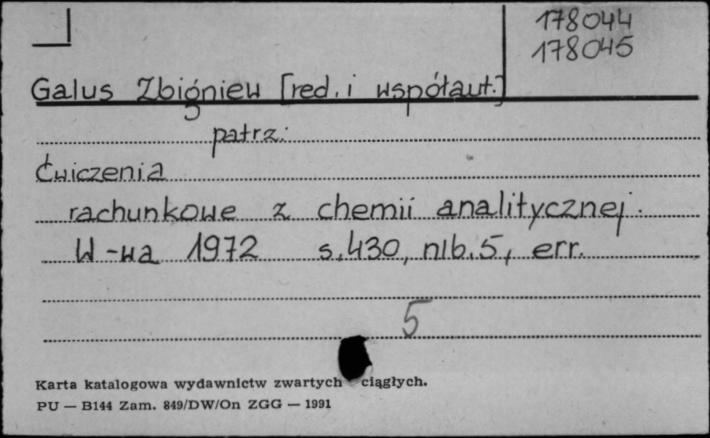 178044
178045
Galus Zbigniew [red. i współaut.]
patrz:
Ćwiczenia
rachunkowe z chemii analitycznej.
W-wa 1972 s. 430, nlb. 5, err.
5
Karta katalogowa wydawnictw zwartych ciągłych.
PU — B144 Zam. 849/DW/On ZGG — 1991